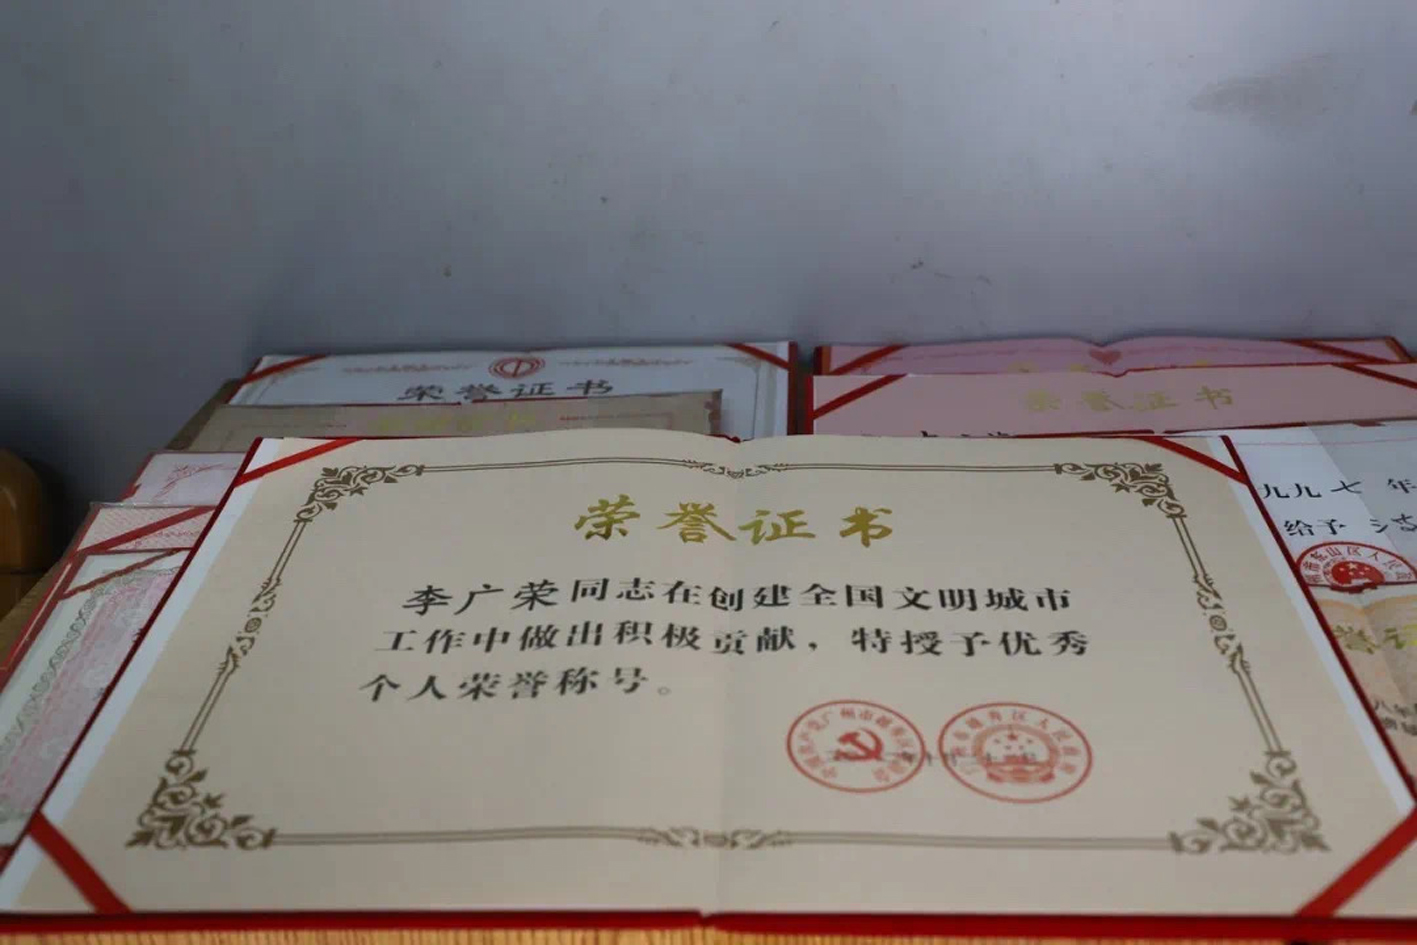 荣誉证书
荣誉证书
荣誉证书
李广荣同志在创建全国文明城市
工作中做出积极贡献，特授予优秀
个人荣誉称号。
九九七 年
给予